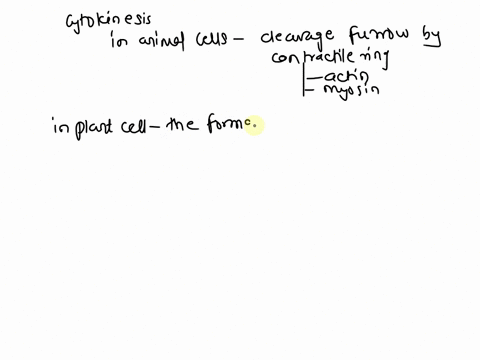 cytokinesis
in animal cells - cleavage furrow by
contractile ring
- actin
- myosin
in plant cell - the forma